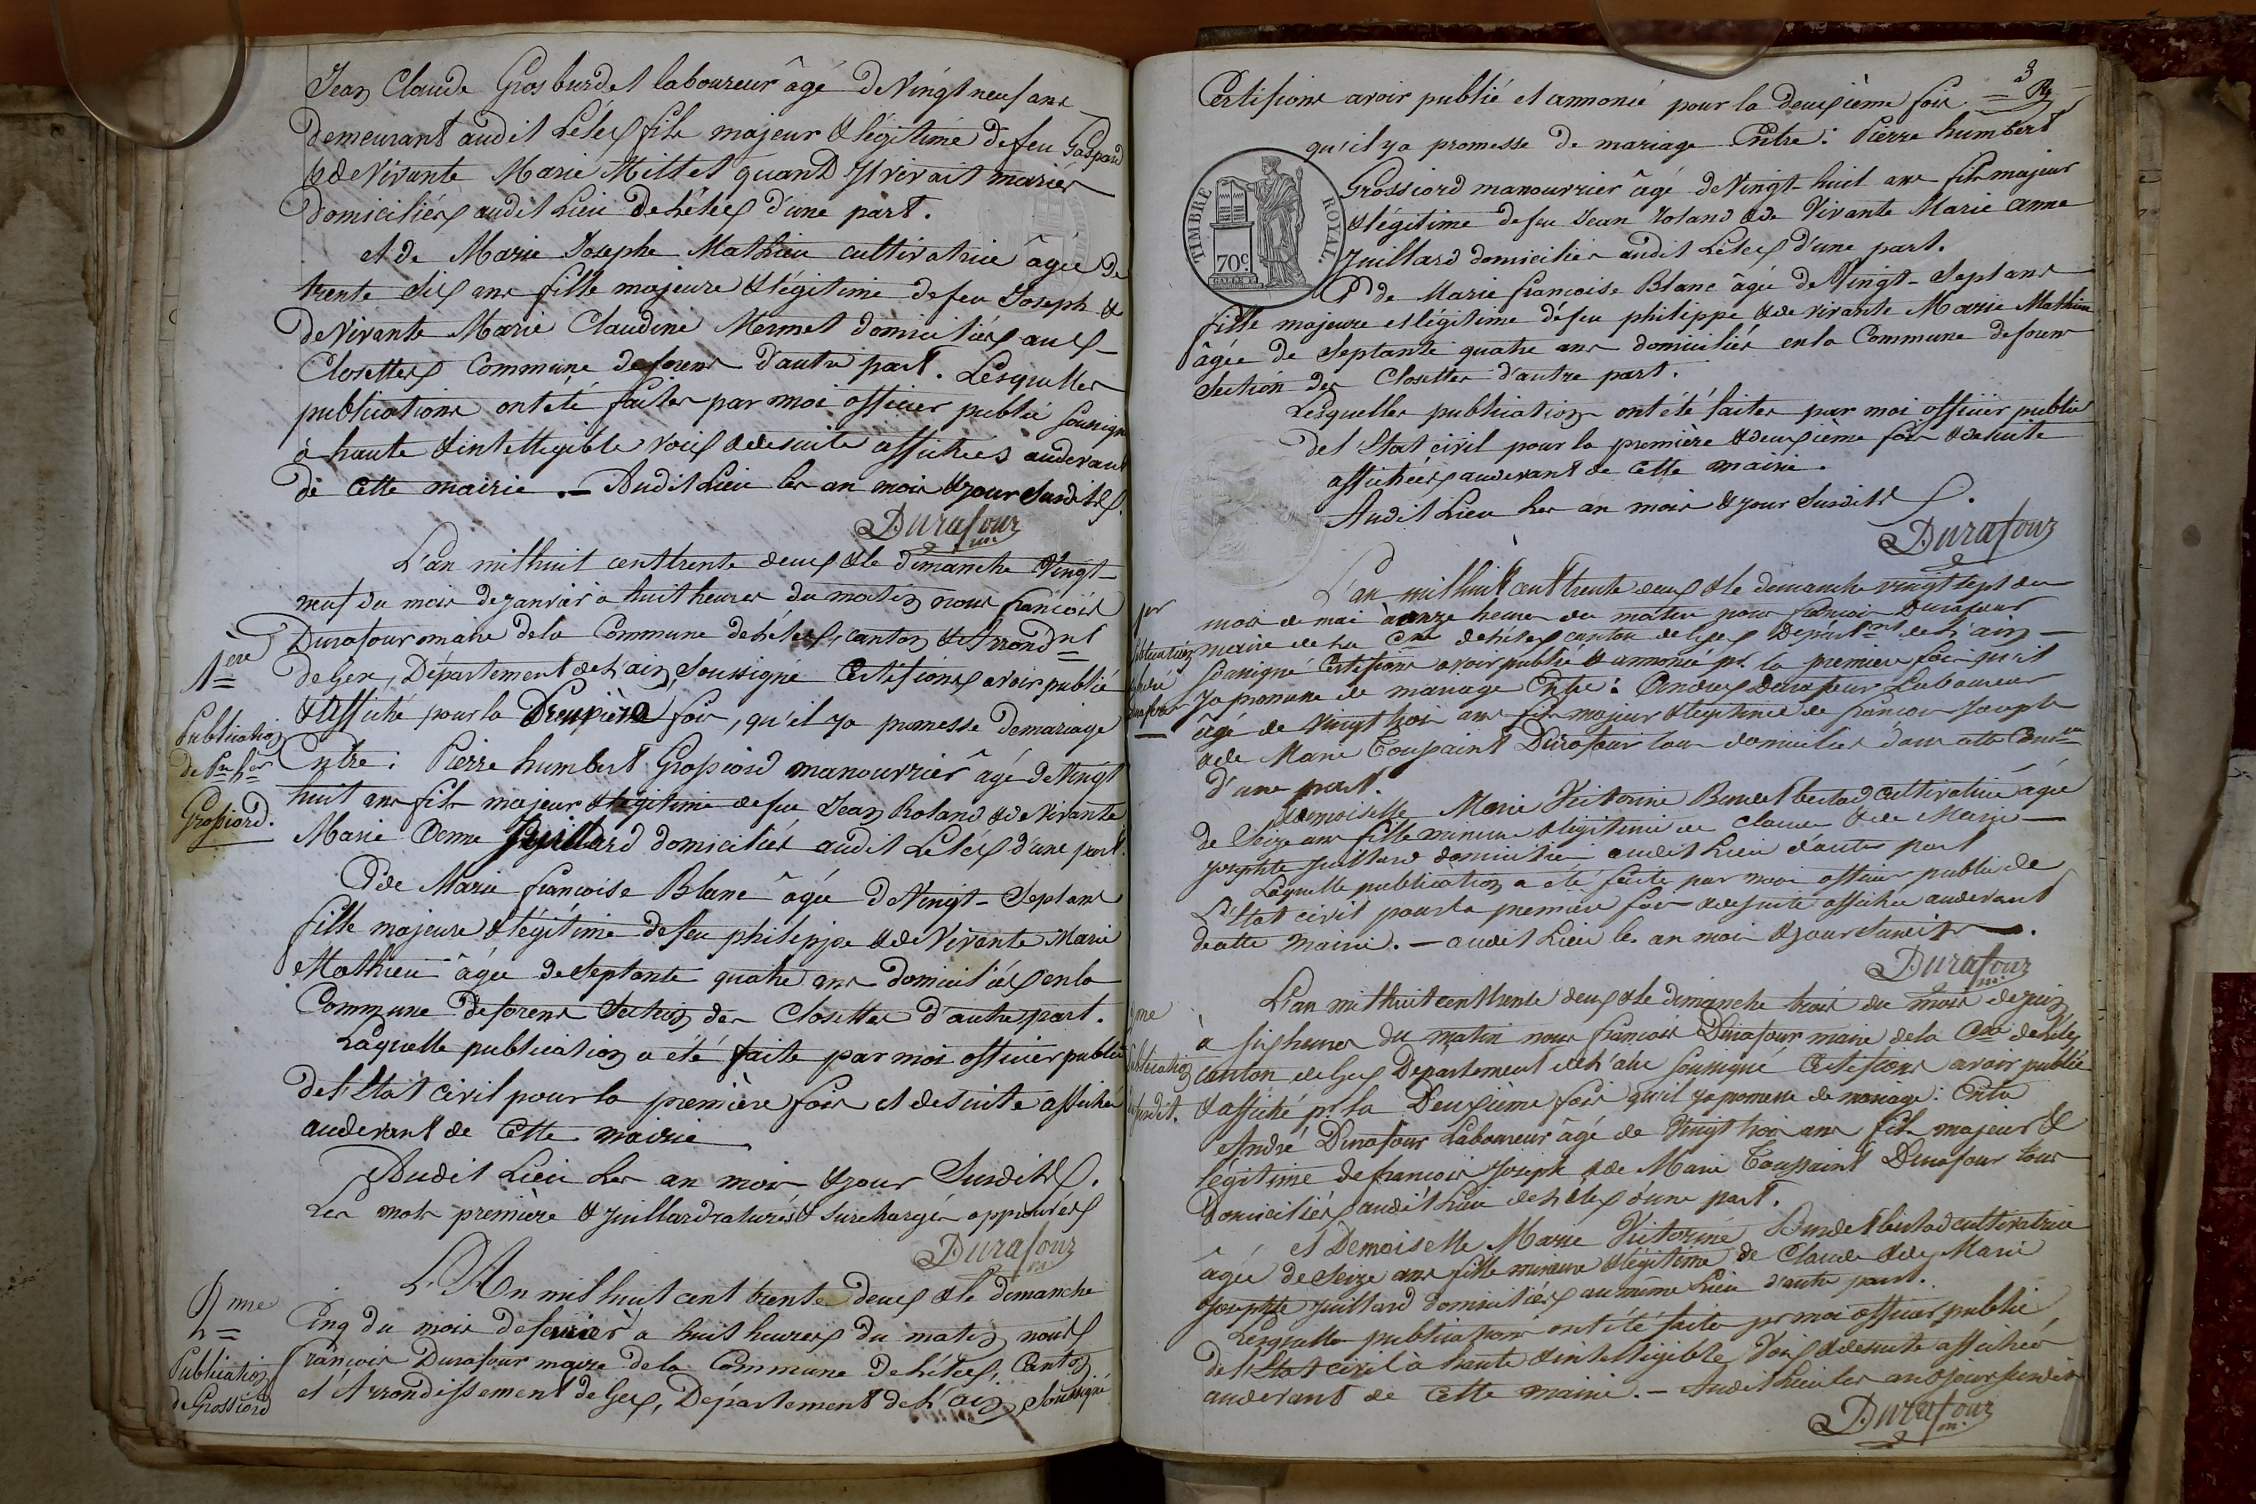 Jean Claude Grosburdet laboureur âgé de Vingt neuf ans
demeurant audit Lélex fils majeur & légitime de feu Gaspard
& de Vivante Marie Millet quand Il vivait mariés
domiciliés audit Lieu de Lélex d'une part.
et de Marie Josephe Mathieu cultivatrice âgée de
trente Six ans fille majeure & légitime de feu Joseph &
de Vivante Marie Claudine Mermet domiciliés aux
Closettes Commune deforens d'autre part. Lesquelles
publications ont été faites par moi officier public Soussigné
à haute & intelligible voix & desuite affichées audevant
de cette mairie. — Audit Lieu les an mois & jour Susdits.
Durafour
L'an mil huit cent trente deux & le dimanche Vingt
neuf du mois de janvier à huit heures du matin nous françois
Durafour maire dela Commune de Lélex, canton & Arrondnt
de Gex, Département de L'ain, Soussigné Certifions avoir publié
& Affiché pour la première fois, qu'il ya promesse demariage
Entre : Pierre humbert Grossiord manouvrier âgé de Vingt
huit ans fils majeur & légitime de feu Jean Roland & de Vivante
Marie Anne Juillard domiciliés audit Lélex d'une part.
& de Marie françoise Blanc âgée de Vingt-Sept ans
fille majeure & légitime de feu philippe & de Vivante Marie
Mathieu âgée de Septante quatre ans domiciliés en la
Commune deforens Section des Closettes d'autre part.
Laquelle publication a été faite par moi officier public
del'Etat civil pour la première fois et desuite affichée
audevant de cette mairie
Audit Lieu Les an mois & jour Susdits.
Les mots première & juillard raturés & Surchargés approuvés
Durafour
L'An mil huit cent trente deux & le dimanche
Cinq du mois defevrier a huit heures du matin nous
françois Durafour maire dela Commune de Lélex, Canton
et Arrondissement de Gex, Département de L'ain Soussigné
1ère
Publication
de Pre hrt
Grossiord.
2me
Publication
de Grossiord
3
Certifions avoir publié et annoncé pour la deuxième fois
qu'il ya promesse de mariage Entre : Pierre humbert
Grossiord manouvrier âgé de Vingt-huit ans fils majeur
& légitime de feu Jean Roland & de Vivante Marie anne
Juillard domiciliés audit Lélex d'une part.
& de Marie francoise Blanc âgée de Vingt-Sept ans
fille majeure et légitime de feu philippe & de vivante Marie Mathieu
âgée de Septante quatre ans domiciliés en la Commune deforens
Section des Closettes d'autre part.
Lesquelles publications ont été faites par moi officier public
del'Etat civil pour la première & deuxième fois & desuite
affichées audevant de cette mairie.
Audit Lieu Les an mois & jour Susdits.
Durafour
TIMBRE ROYAL
70c.
L'an mil huit cent trente deux & le dimanche vingt sept du
mois de mai à onze heures du matin nous francois Durafour
maire de la Cne de Lélex canton de Gex Département de L'ain
Soussigné Certifions avoir publié & annoncé pr. la premiere fois qu'il
ya promesse de mariage Entre : André Durafour Laboureur
âgé de vingt trois ans fils majeur & légitime de francois Joseph
& de Marie Toussaint Durafour tous domiciliés dans cette Commune
d'une part.
& demoiselle Marie Victorine Burdet bertad cultivatrice âgée
de Seize ans fille mineure & légitime de Claude & de Marie
josephte Juillard domiciliés audit Lieu d'autre part
Laquelle publication a été faite par moi officier public de
L'Etat civil pour la première fois & desuite affichée audevant
de cette mairie. — audit Lieu les an mois & jour Susdits.
Durafour
L'an mil huit cent trente deux & le dimanche trois du mois de juin
à six heures du matin nous francois Durafour maire dela Cne de Lélex
canton de Gex Département de L'ain Soussigné Certifions avoir publié
& affiché pr. la Deuxième fois qu'il ya promesse de mariage : Entre
André Durafour Laboureur âgé de Vingt trois ans fils majeur &
légitime de francois Joseph & de Marie Toussaint Durafour tous
domiciliés audit Lieu de Lélex d'une part.
et Demoiselle Marie Victorine Burdet bertad cultivatrice
âgée de Seize ans fille mineure & légitime de Claude & de Marie
Josephte Juillard domiciliés au même Lieu d'autre part.
Lesquelles publications ont été faites pr moi officier public
de l'Etat civil à haute & intelligible Voix & desuite affichées
audevant de cette mairie. — Audit Lieu les an & jour Susdits
Durafour